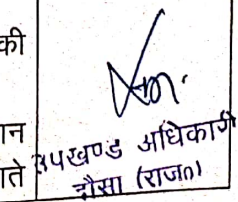 की
न
ते
उपखण्ड अधिकारी
दौसा (राज०)